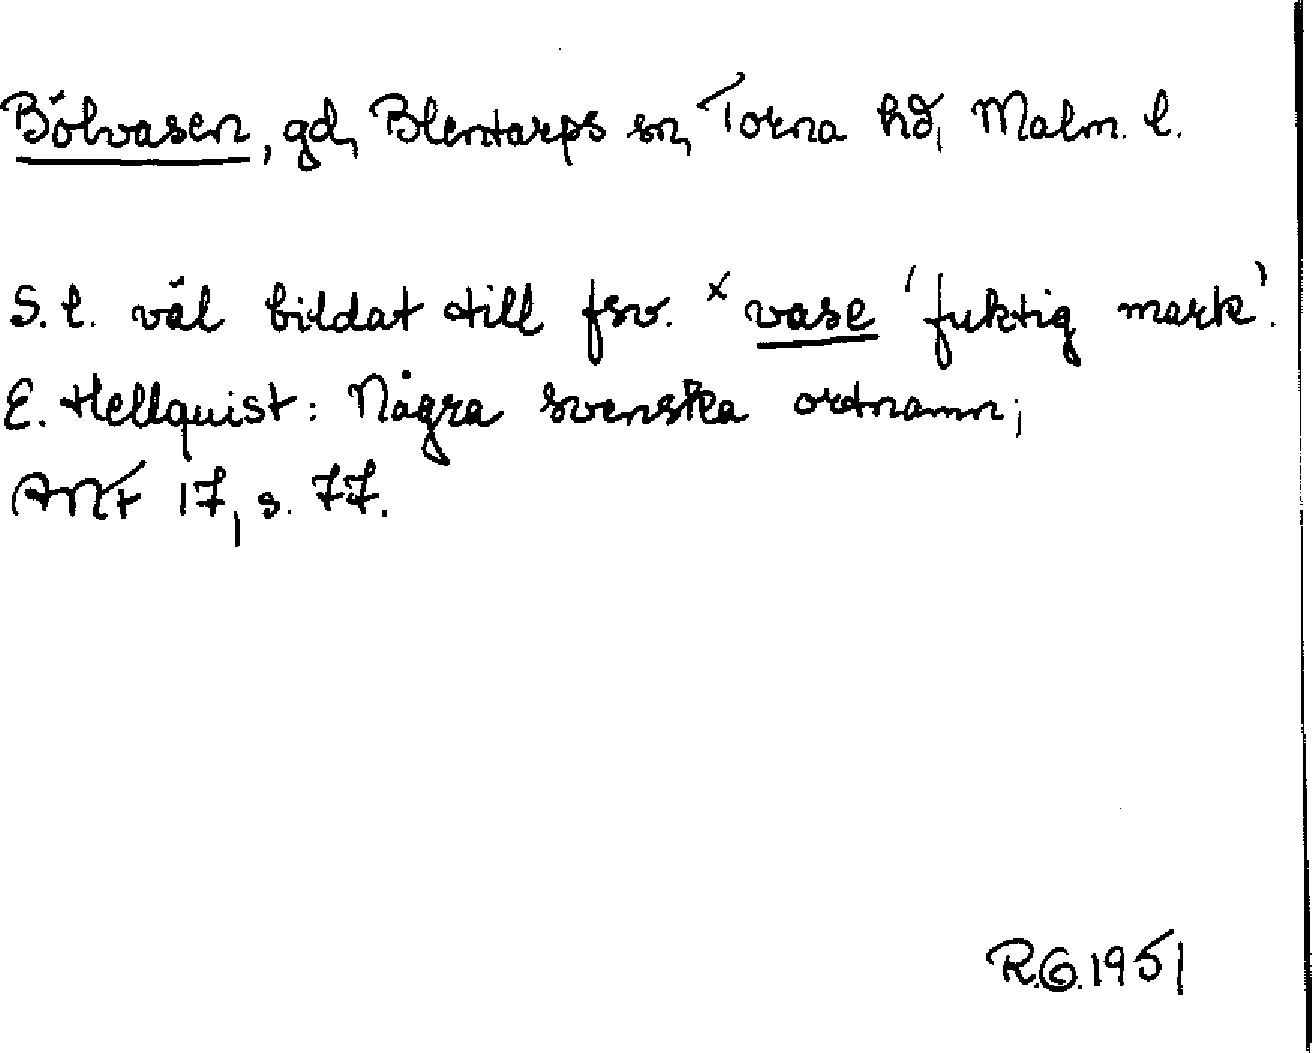 Bölvasen, gd, Blentarps sn, Torna hd, Malm. l.
S. l. väl bildat till fsv. ˣvase 'fuktig mark'.
E. Hellquist: Några svenska ortnamn;
ANF 17, s. 77.
R.G. 1951